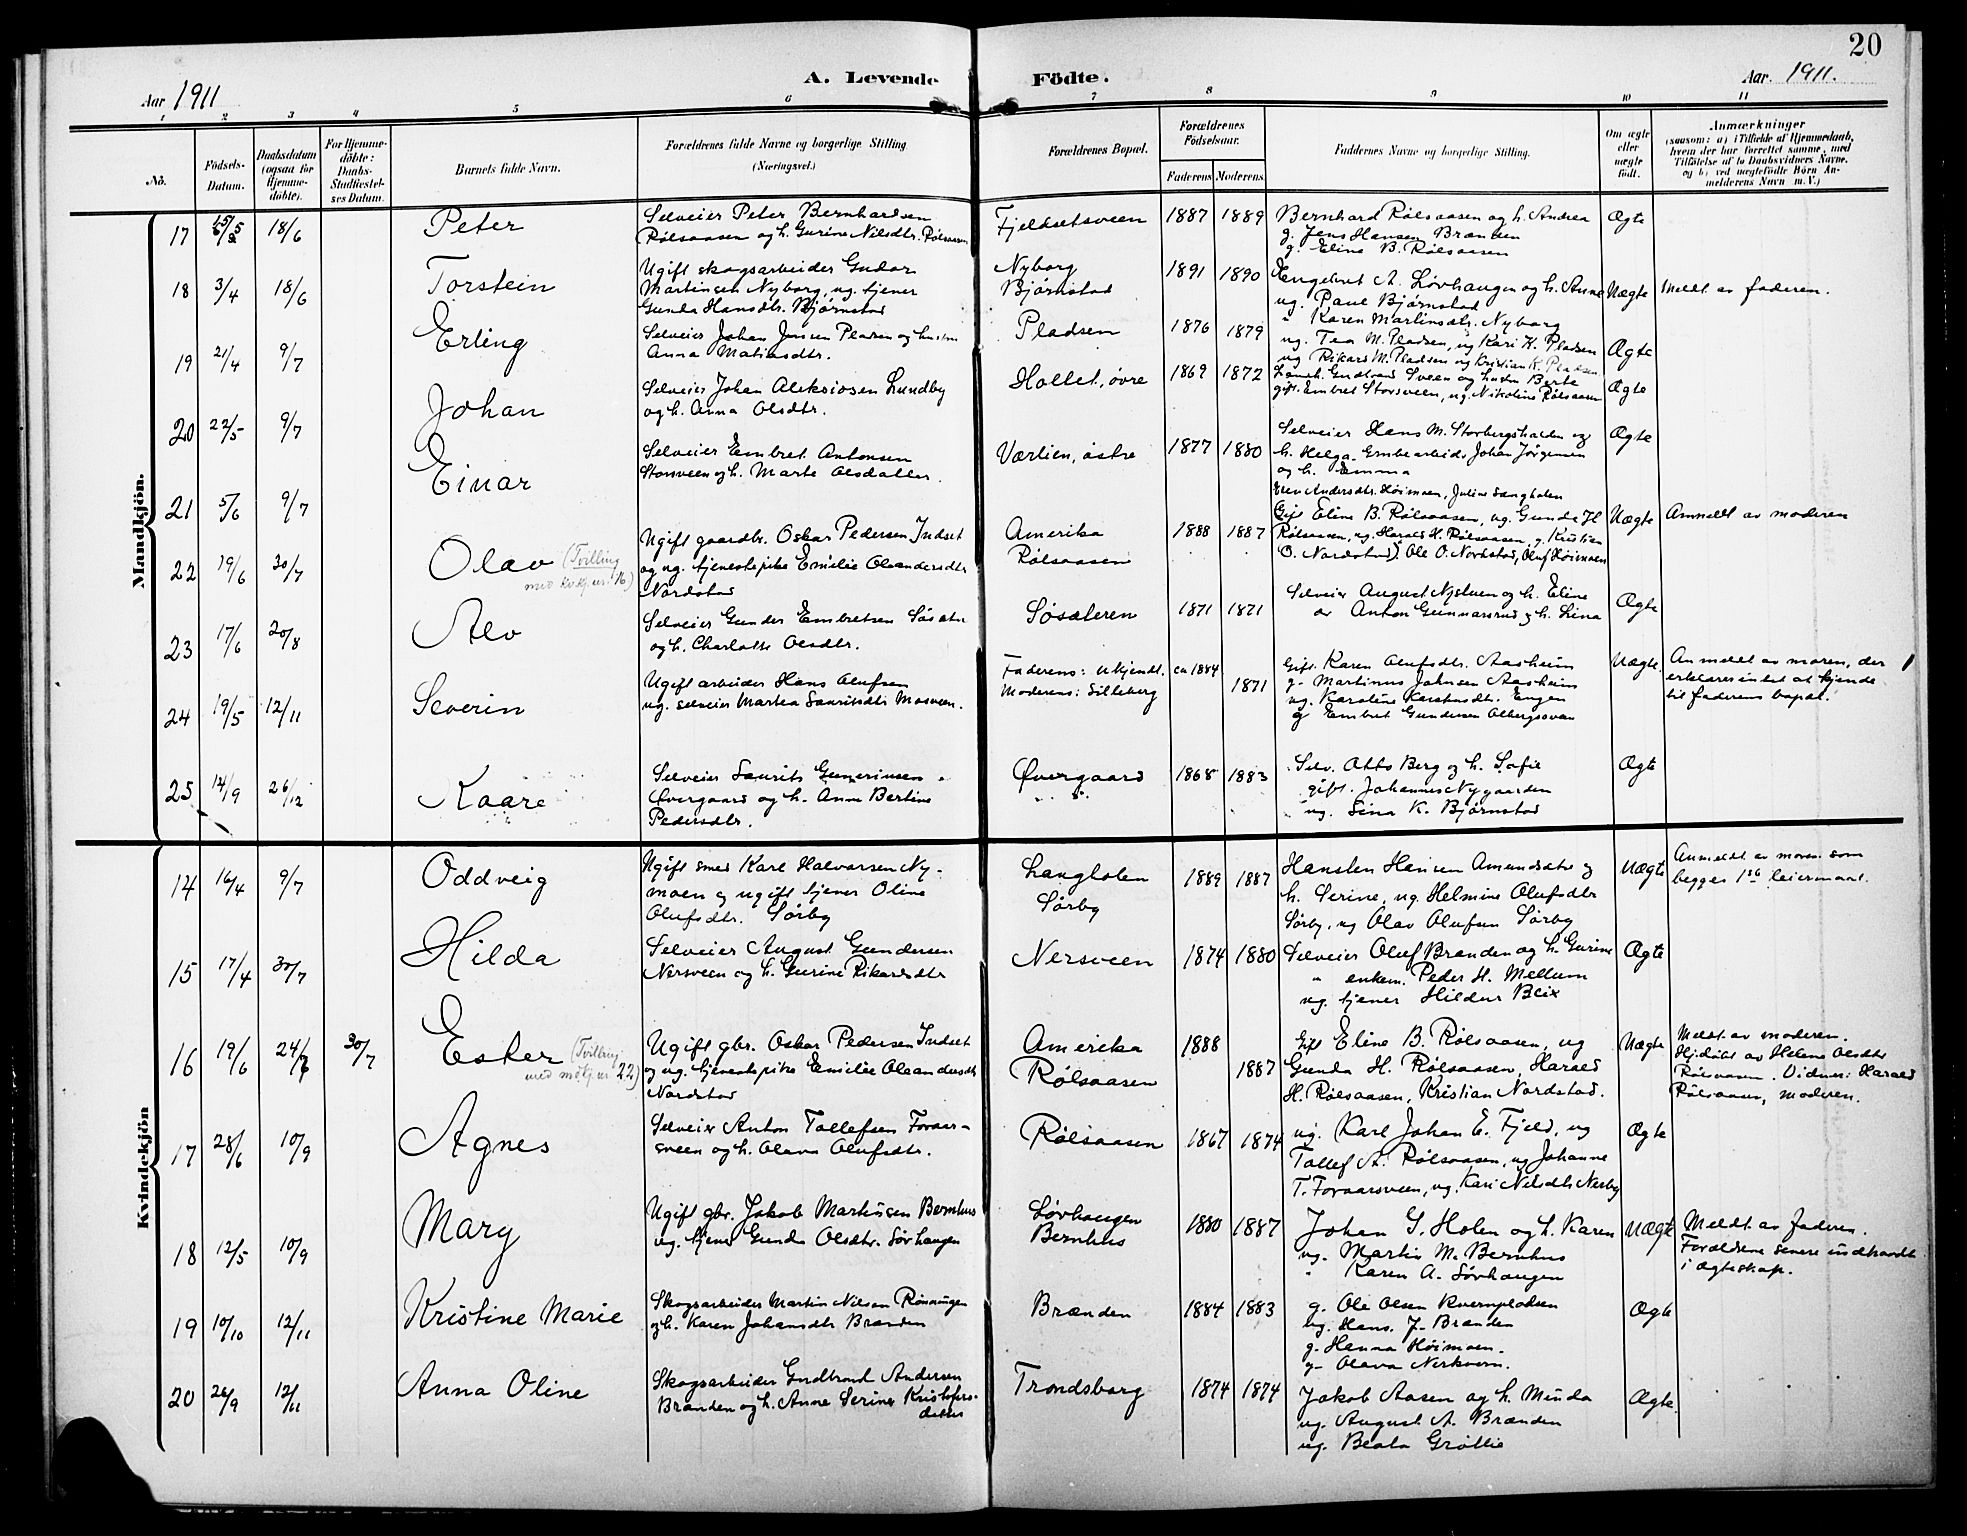 20
A. Levende Födte.
Aar 1911
Aar. 1911.
1 2 3 4 5 6 7 8 9 10 11
No.
Födsels-Datum.
Daabsdatum (ogsaa for Hjemme-döbte).
For Hjemme-döbte: Daabs-Stadfæstel-ses Datum.
Barnets fulde Navn.
Forældrenes fulde Navne og borgerlige Stilling
(Næringsvei.)
Forældrenes Bopæl.
Forældrenes Födselsaar.
Faderens Moderens
Faddernes Navne og borgerlige Stilling.
Om ægte eller uægte födt.
Anmærkninger
(saasom: a) i Tilfælde af Hjemmedaab,
hvem der har forrettet samme, med
Tilföielse af to Daabsvidners Navne,
og b) ved uægtefödte Börn An-
melderens Navn m. V.)
Mandkjön.
17 18/6 Peter
Selveier Peter Bernhardsen
Rølsaasen og h. Gurine Nilsdtr. Rølsaasen
Fjeldsetsveen 1887 1889
Bernhard Rølsaasen og h. Andrea
g. Jens Hansen Brænden
g. Eline B. Rølsaasen
Ægte
18 3/4 18/6 Torstein
Ugift skogsarbeider Gudor
Martinsen Nyborg, ug. tjener
Gunda Hansdtr. Bjørnstad
Nyborg
Bjørnstad
1891 1890
Engebret A. Løvhaugen og h. Anne
ug. Paul Bjørnstad
" Karen Martinsdtr. Nyborg
Uægte Meldt av faderen.
19 21/4 9/7 Erling
Selveier Johan Jonsen Pladsen og hustru
Anna Matiasdtr.
Pladsen 1876 1879
ug. Tea M. Pladsen, ug Kari K. Pladsen
ug Rikard M. Pladsen og Kristian K. Pladsen
Ægte
20 22/5 9/7 Johan
Selveier Johan Aleksiosen Lundby
og h. Anna Olsdtr.
Hollet, øvre 1869 1872
Gudbrand Sveen og hustru Berte
gift. Embret Storsveen, ug. Nikoline Rølsaasen
Ægte
21 5/6 9/7 Einar
Selveier Embret Antonsen
Storsveen og h. Marte Olsdatter.
Værlien, østre 1877 1880
Selveier Hans M. Storbergshalden og
h. Helga. Johan Jörgensen
og h. Emma
Ægte
22 19/6 30/7 Olav (Tvilling
med kvkj. nr. 16)
Ugift gaardbr. Oskar Pedersen Indset
og ug. tjenestepike Emilie Oleandersdtr
Nordstad
Amerika
Rølsaasen
1888 1887
Eren Andersdtr. Höimoen, Julius Langholen
Gift Eline B. Rølsaasen, ug. Gunda H.
Rølsaasen, ug. Harald H. Rølsaasen, g. Kristian
O. Nordstad, Ole O. Nordstad, Oluf Höimoen
Uægte Anmeldt av moderen
23 17/6 20/8 Alv
Selveier Gunder Embretsen Søsæter
og h. Charlotte Olsdtr.
Søsæteren 1871 1871
Selveier August Nystuen og h. Eline
Anton Gunnarsrud og h. Lina
Ægte
24 19/5 12/11 Severin
Ugift arbeider Hans Olufsen
ug. selveier Martea Lauritsdtr Mosveen.
Faderens: ukjendt.
Moderens: Silleberg
ca 1884 1871
Gift. Karen Olufsdtr. Aasheim
g. Martinus Johnsen Aasheim
ug. Karoline Karstensdtr. Engen
g Embret Gundersen Olbergssveen
Uægte. Anmeldt av moren, der
erklærer intet at kjende
til faderens bopæl.
25 14/9 26/12 Kaare
Selveier Laurits Gunerinsen
Øvergaard og h. Anna Bertine
Pedersdtr.
Øvergaard 1868 1883
Selv. Otto Berg og h. Sofie
gift. Johannes Nygaarden
ug. Lina K. Bjørnstad
Ægte
Kvindekjön
14 16/4 9/7 Oddveig
Ugift smed Karl Halvorsen Ny-
moen og ugift tjener Oline
Olufsdtr. Sørby
Langholen
Sørby
1889 1887
Hansten Hansen Amundsætr og
h. Serine, ug. Helmine Olufsdtr
Sørby, ug Olav Olufsen Sørby
Uægte Anmeldt av moren som
begges 1ste leiermaal.
15 17/4 30/7 Hilda
Selveier August Gundersen
Nersveen og h. Gurine Rikardsdtr
Nersveen 1874 1880
Selveier Oluf Brænden og h. Gurine
" enkem. Peder H. Mellum
ug. tjener Hildur Blix
Ægte
16 19/6 24/6 30/7 Ester (Tvilling
med mdkj. nr. 22)
Ugift gbr. Oskar Pedersen Indset
og ug. tjenestepike Emilie Oleandersdtr
Nordstad
Amerika
Rølsaasen
1888 1887
Gift Eline B. Rølsaasen, ug
Gunda H. Rølsaasen, Harald
H. Rølsaasen, Kristian Nordstad.
Uægte Meldt av moderen.
Hjdøbt av Helene Olsdtr
Rølsaasen. Vidner: Harald
Rølsaasen, moderen.
17 28/6 10/9 Agnes
Selveier Anton Tollefsen Foraar-
sveen og h. Olava Olufsdtr.
Rølsaasen 1867 1874
ug. Karl Johan E. Fjeld, ug
Tollef A. Rølsaasen, ug Johanne
T. Foraarsveen, ug. Kari Nilsdtr Nerby
Ægte
18 12/5 10/9 Mary
Ugift gbr. Jakob Martinsen Bernhus
ug. tjener Gunda Olsdtr. Løvhaugen
Løvhaugen
Bernhus
1880 1887
Johan G. Holen og h. Karen
ug. Martin M. Bernhus
" Karen A. Løvhaugen
Uægte Meldt av faderen.
Forældrene senere indtraadt
i ægteskap.
19 10/10 12/11 Kristine Marie
Skogsarbeider Martin Nilsen Rønningen
og h. Karen Johansdtr Brænden
Brænden 1884 1883
g. Ole Olsen Kvernpladsen
ug. Hans. J. Brænden
g. Hanna Höimoen.
g. Olava Nerkvern.
Ægte
20 26/9 12/11 Anna Oline
Skogsarbeider Gudbrand Andersen
Brænden og h. Anne Serine Kristofers-
datter
Trondsborg 1874 1874
Jakob Aasen og h. Minda
ug. August A. Brænden
ug. Beata Grøtlie
Ægte.